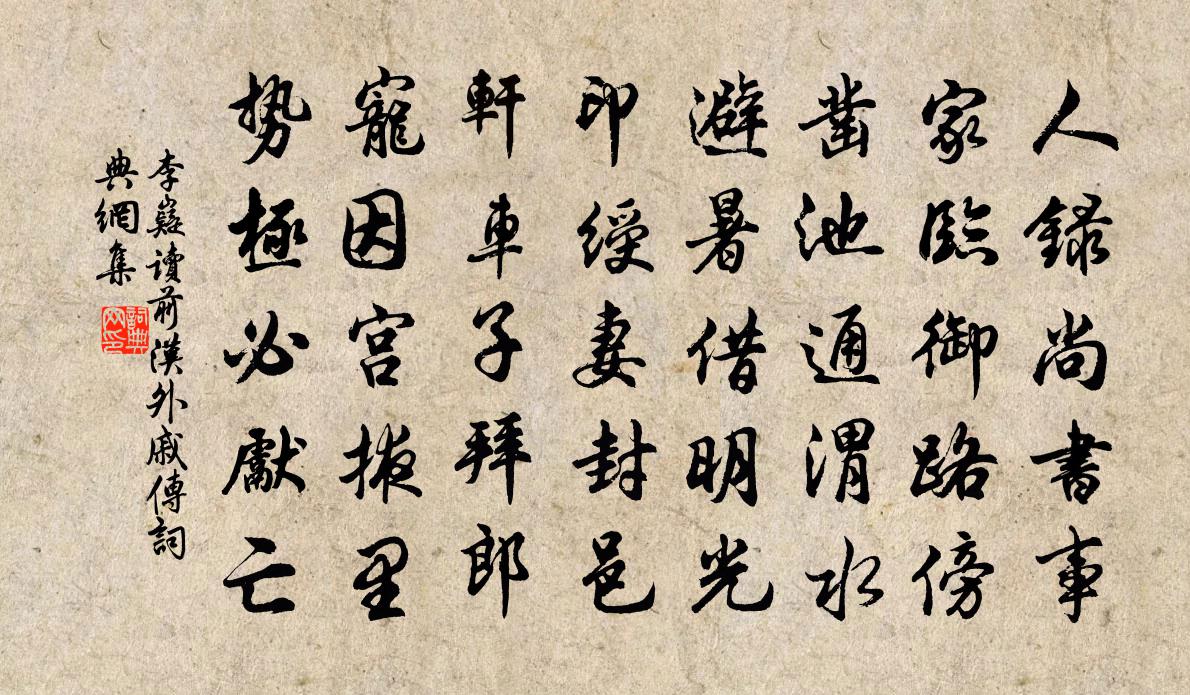 人錄尚書事
家臨御路傍
凿池通渭水
避暑借明光
印綬妻封邑
軒車子拜郎
寵因宮掖里
势極必獻亡
李嶷讀前漢外戚傳詞
典網集
詞典
网印